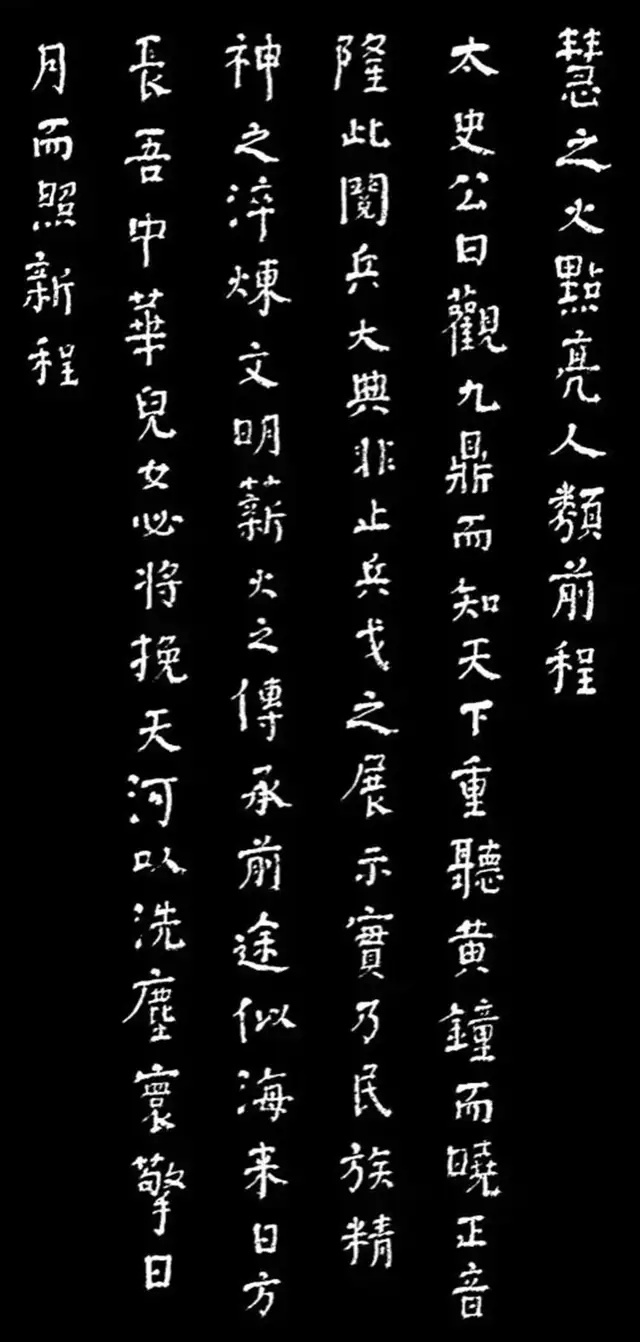 慧之火點亮人類前程
太史公曰觀九鼎而知天下重聽黄鐘而曉正音
隆此閱兵大典非止兵戈之展示實乃民族精
神之淬煉文明薪火之傳承前途似海来日方
長吾中華兒女必将挽天河以洗塵寰擎日
月而照新程